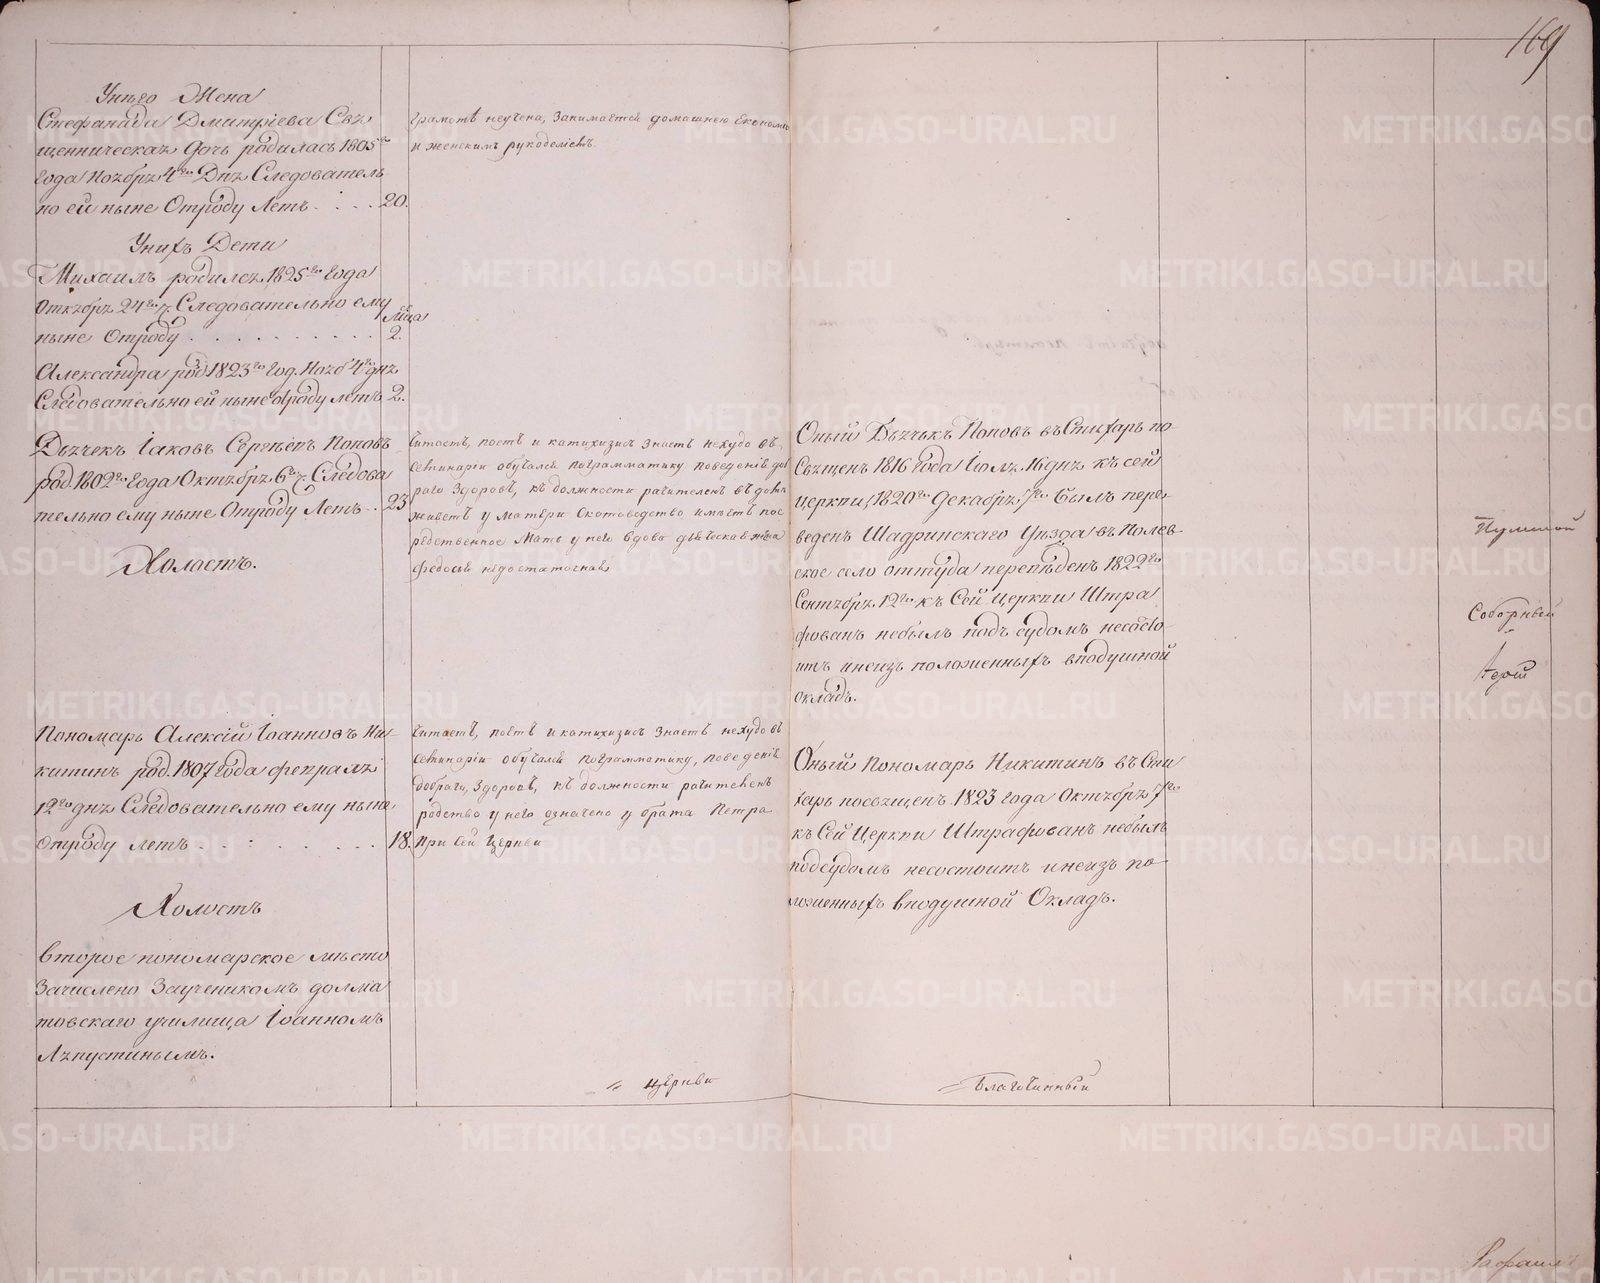 169
Унего Жена
Стефанида Дмитріева Свя
щенническая дочь родилась 1805го
года Ноября 4го Дня Следователь
но ей ныне Отроду Летъ . . . . 20.
Унихъ Дети
Михаилъ родился 1825го года
Октября 24го Следовательно ему
ныне Отроду . . . . . . . . . . 2.
Александра род. 1823го год. Нояб 4го дня
Следовательно ей ныне отроду летъ 2.
Дьячекъ Іаковъ Сергѣевъ Поповъ
род. 1802го года Октября 6го Следова
тельно ему ныне Отроду Летъ . . 23
Холостъ.
Пономарь Алексій Іоанновъ Ни-
китинъ род. 1807 года февраля
12го дня Следовательно ему ныне
отроду летъ . . . . . . . . 18.
Холостъ
второе пономарское место
Зачислено Заучеником долма
товскаго училища Іоанномъ
Ляпустинымъ.
грамотѣ неучена, Занимается домашнею Економіе
и женскимъ рукоделіемъ.
Читаетъ, поетъ и катихизисъ знаетъ нехудо въ
Семинаріи обучался пограмматику поведенія доб
раго Здоровъ, къ должности рачителенъ въ домѣ
живетъ у матери Скотоводство имѣетъ пос
редственное Мать у него вдова дьяческая жена
Федосья недостаточная
Читаетъ, поетъ и катихизисъ знаетъ нехудо въ
Семинаріи обучался пограмматику, поведенія
добраго, Здоровъ, къ должности рачителенъ
родство у него означено у брата Петра
При сей Церкви
// Церкви
Оный Дьячькъ Поповъ въ Стихарь по-
Священъ 1816 года Іюля 16 дня къ сей
церкви, 1820го Декабря 7го былъ пере-
веденъ Шадринскаго Уезда въ Полев-
ское село оттуда переведенъ 1822го
Сентября 12го къ Сей Церкви Штра
фованъ небылъ подъ судомъ несосто
итъ инеизъ положенныхъ вподушной
окладъ.
Оный Пономарь Никитинъ въ Сти
харь посвященъ 1823 года Октября 7го
къ Сей Церкви Штрафованъ небылъ
подсудомъ несостоитъ инеизъ по-
ложенныхъ вподушной Окладъ.
Благочинный
Соборный
Рафаилъ